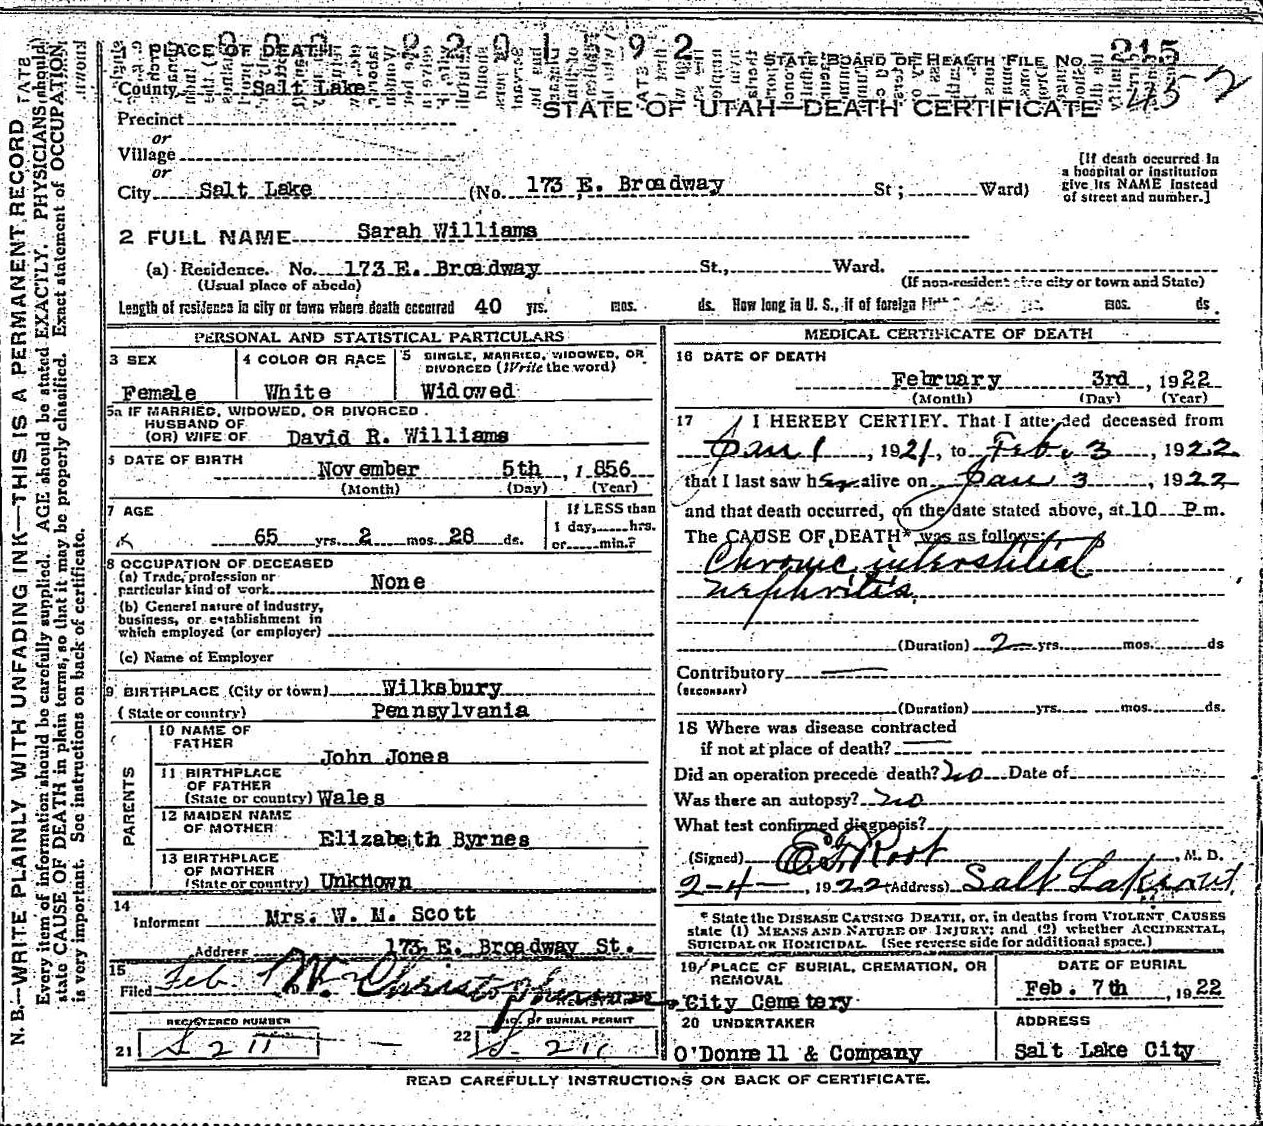 N. B.—WRITE PLAINLY WITH UNFADING INK—THIS IS A PERMANENT RECORD
Every item of information should be carefully supplied. AGE should be stated EXACTLY. PHYSICIANS should
state CAUSE OF DEATH in plain terms, so that it may be properly classified. Exact statement of OCCUPATION
is very important. See instructions on back of certificate.
1 PLACE OF DEATH
STATE BOARD OF HEALTH FILE NO. 215
County Salt Lake
452
STATE OF UTAH—DEATH CERTIFICATE
Precinct
or
Village
or
City Salt Lake (No. 173 E. Broadway St; Ward)
[If death occurred in
a hospital or institution
give its NAME instead
of street and number.]
2 FULL NAME Sarah Williams
(a) Residence. No. 173 E. Broadway St., Ward.
(Usual place of abode) (If non-resident give city or town and State)
Length of residence in city or town where death occurred 40 yrs. mos. ds. How long in U. S., if of foreign birth? mos. ds.
PERSONAL AND STATISTICAL PARTICULARS
3 SEX
Female
4 COLOR OR RACE
White
5 SINGLE, MARRIED, WIDOWED, OR
DIVORCED (Write the word)
Widowed
5a IF MARRIED, WIDOWED, OR DIVORCED
HUSBAND OF
(OR) WIFE OF David R. Williams
6 DATE OF BIRTH
November 5th, 1856
(Month) (Day) (Year)
7 AGE
65 yrs. 2 mos. 28 ds.
If LESS than
1 day, hrs.
or min.?
8 OCCUPATION OF DECEASED
(a) Trade, profession or
particular kind of work None
(b) General nature of industry,
business, or establishment in
which employed (or employer)
(c) Name of Employer
9 BIRTHPLACE (City or town) Wilksbury
(State or country) Pennsylvania
PARENTS
10 NAME OF
FATHER
John Jones
11 BIRTHPLACE
OF FATHER
(State or country) Wales
12 MAIDEN NAME
OF MOTHER
Elizabeth Byrnes
13 BIRTHPLACE
OF MOTHER
(State or country) Unknown
14
Informent Mrs. W. M. Scott
Address 173 E. Broadway St.
15
Filed Feb. Christopherson
REGISTERED NUMBER
21 S 211
NO. OF BURIAL PERMIT
22 S 211
MEDICAL CERTIFICATE OF DEATH
16 DATE OF DEATH
February 3rd, 1922
(Month) (Day) (Year)
17 I HEREBY CERTIFY. That I attended deceased from
Jan 1, 1921, to Feb. 3, 1922
that I last saw her alive on Jan 3, 1922
and that death occurred, on the date stated above, at 10 P.m.
The CAUSE OF DEATH* was as follows:
Chronic interstitial
nephritis
(Duration) 2 yrs. mos. ds
Contributory
(SECONDARY)
(Duration) yrs. mos. ds.
18 Where was disease contracted
if not at place of death?
Did an operation precede death? No Date of
Was there an autopsy? No
What test confirmed diagnosis?
(Signed) Root, M. D.
2-4-, 1922 (Address) Salt Lake
* State the DISEASE CAUSING DEATH, or, in deaths from VIOLENT CAUSES
state (1) MEANS AND NATURE OF INJURY; and (2) whether ACCIDENTAL,
SUICIDAL OR HOMICIDAL. (See reverse side for additional space.)
19 PLACE OF BURIAL, CREMATION, OR
REMOVAL
City Cemetery
DATE OF BURIAL
Feb. 7th, 1922
20 UNDERTAKER
O'Donnell & Company
ADDRESS
Salt Lake City
READ CAREFULLY INSTRUCTIONS ON BACK OF CERTIFICATE.